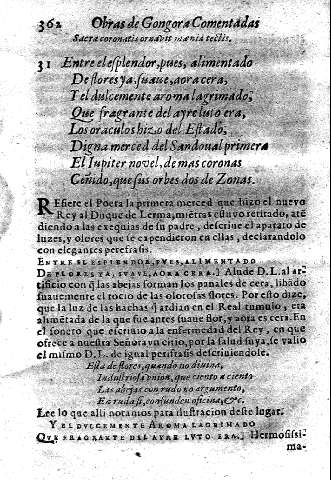 362 Obras de Gongora Comentadas
Sacra coronatis ornabit mœnia tectis.
31 Entre el esplendor, pues, alimentado
De flores ya, suaue, aora cera,
Y el dulcemente aroma lagrimado,
Que fragrante del ayre luto era,
Los oraculos hizo del Estado,
Digna merced del Sandoual primera
El Iupiter novel, de mas coronas
Ceñido, que sus orbes dos de Zonas.
REfiere el Poeta la primera merced que hizo el nuevo
Rey al Duque de Lerma, miẽtras estuvo retirado, atẽ
diendo a las exequias de su padre, descriue el aparato de
luzes, y olores que se expendieron en ellas, declarandolo
con elegantes perifrasis.
ENTRE EL ESPLENDOR, PVES, ALIMENTADO
DE FLORES YA, SVAVE, AORA CERA.] Alude D.L. al ar-
tificio con q̃ las abejas forman los panales de cera, libãdo
suauemente el rocio de las olorosas flores. Por esto dize,
que la luz de las hachas q̃ ardian en el Real tumulo, era
alimẽtada de la que fue antes suaue flor, y aora es cera. En
el soneto que escriuio a la enfermedad del Rey, en que
ofrece a nuestra Señora vn cirio, por la salud suya, se valio
el mismo D.L. de igual perifrasis describiendole.
Esta de flores, quando no divina,
Industriosa union, que ciento a ciento
Las abejas con rudo no argumento,
En ruda si, confunden oficina, &c.
Lee lo que alli notamos para ilustracion deste lugar.
Y EL DVLCEMENTE AROMA LAGRIMADO
QVE FRAGRANTE DEL AYRE LVTO ERA.] Hermosissi-
ma-